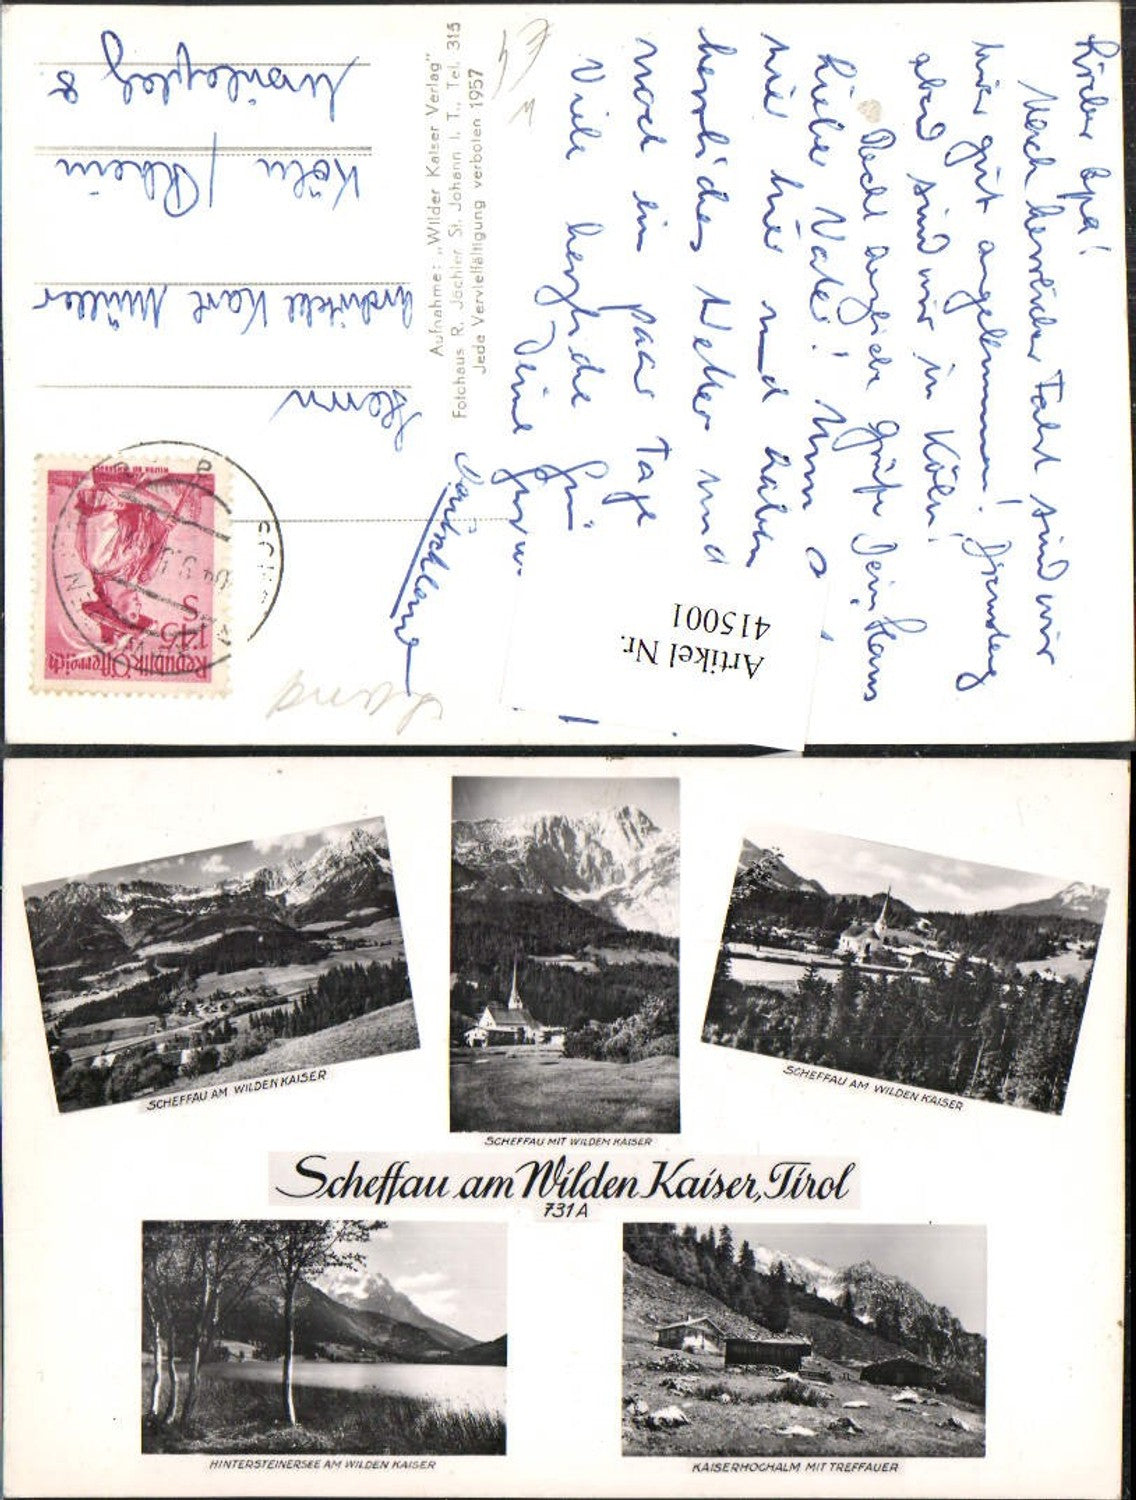 Lieber Opa!
Nach herrlicher Fahrt sind wir
hier gut angekommen! Dienstag
abend sind wir in Köln!
Recht herzliche Grüße Dein Hans
Lieber Vater! Nun
wir hier und haben
herrliches Wetter und
noch ein paar Tage
Viele herzliche
Deine
Aufnahme: „Wilder Kaiser Verlag"
Fotohaus R. Jöchler St. Johann i. T., Tel. 315
Jede Vervielfältigung verboten 1957
Herrn
Architekt Karl Müller
Köln / Rhein
8
Deutschland
Republik Österreich
1'45
S
Artikel Nr.
415001
SCHEFFAU AM WILDEN KAISER
SCHEFFAU MIT WILDEM KAISER
SCHEFFAU AM WILDEN KAISER
Scheffau am Wilden Kaiser, Tirol
731A
HINTERSTEINERSEE AM WILDEN KAISER
KAISERHOCHALM MIT TREFFAUER